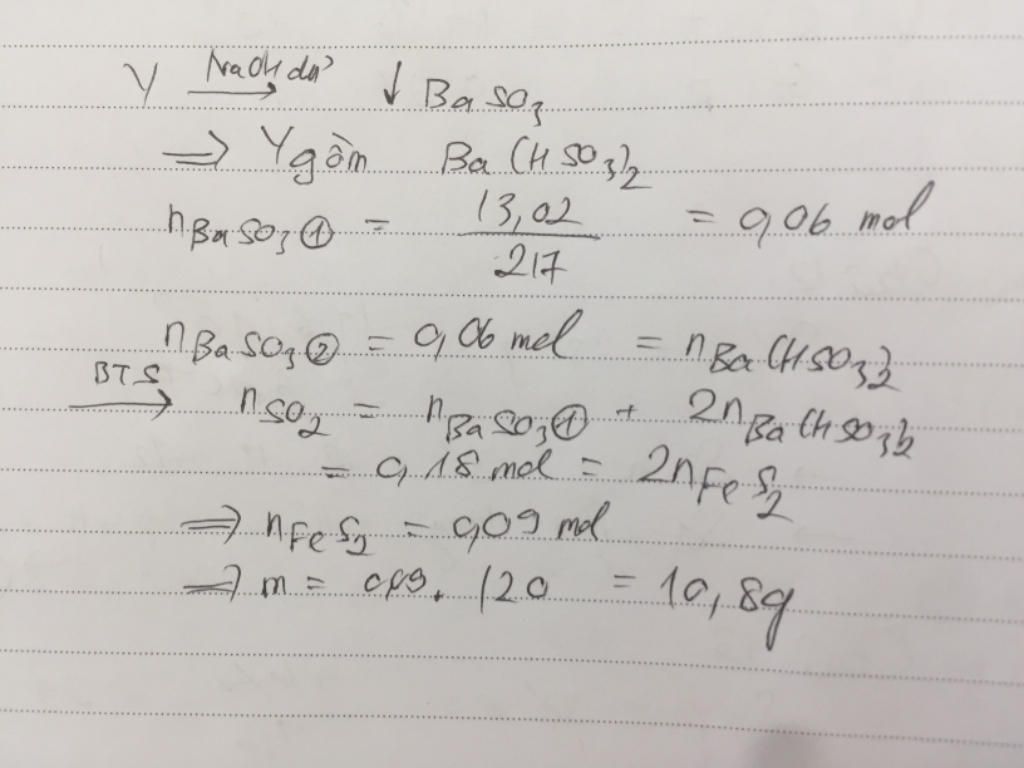 Y NaOH dư → ↓ BaSO₃
⇒ Y gồm Ba(HSO₃)₂
n BaSO₃ ① = 13,02 / 217 = 0,06 mol
n BaSO₃ ② = 0,06 mol = n Ba(HSO₃)₂
BTS → n SO₂ = n BaSO₃ ① + 2n Ba(HSO₃)₂
= 0,18 mol = 2n FeS₂
⇒ n FeS₂ = 0,09 mol
⇒ m = 0,09 . 120 = 10,8g